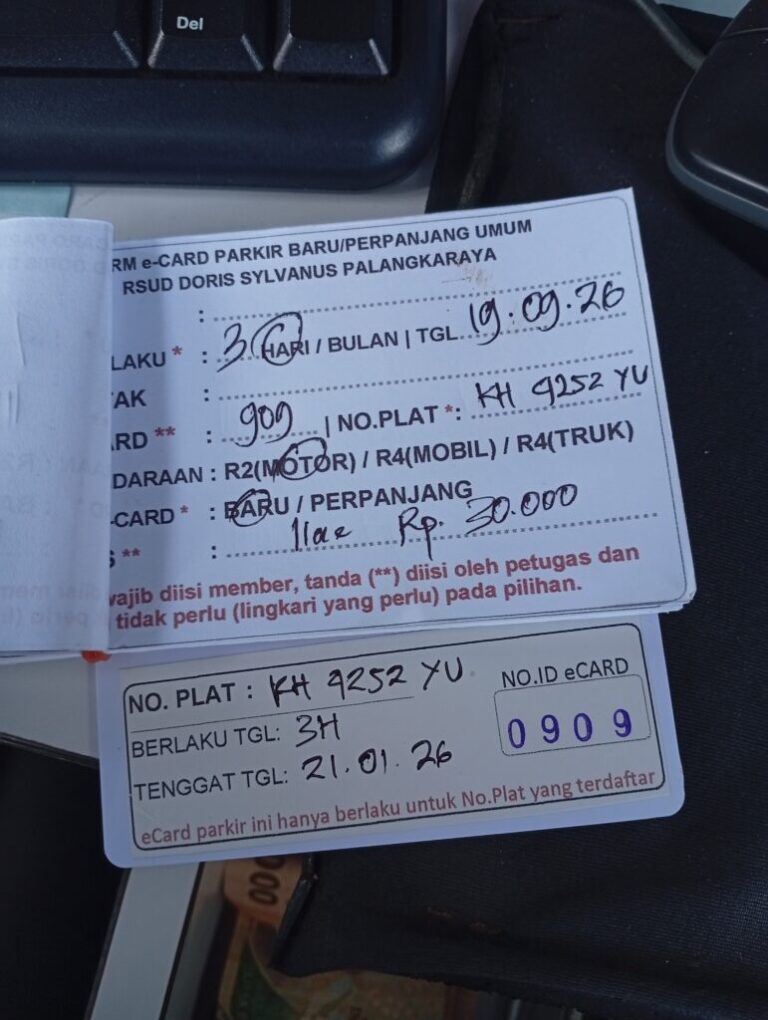 Del
RM e-CARD PARKIR BARU/PERPANJANG UMUM
RSUD DORIS SYLVANUS PALANGKARAYA
:
LAKU * : 3 HARI / BULAN | TGL. 19.09.26
AK :
RD ** : 909 | NO.PLAT *: KH 4252 YU
DARAAN : R2(MOTOR) / R4(MOBIL) / R4(TRUK)
-CARD * : BARU / PERPANJANG
S ** : Rp. 30.000
wajib diisi member, tanda (**) diisi oleh petugas dan
tidak perlu (lingkari yang perlu) pada pilihan.
NO. PLAT : KH 4252 YU
NO.ID eCARD
0909
BERLAKU TGL: 3H
TENGGAT TGL: 21.01.26
eCard parkir ini hanya berlaku untuk No.Plat yang terdaftar
000